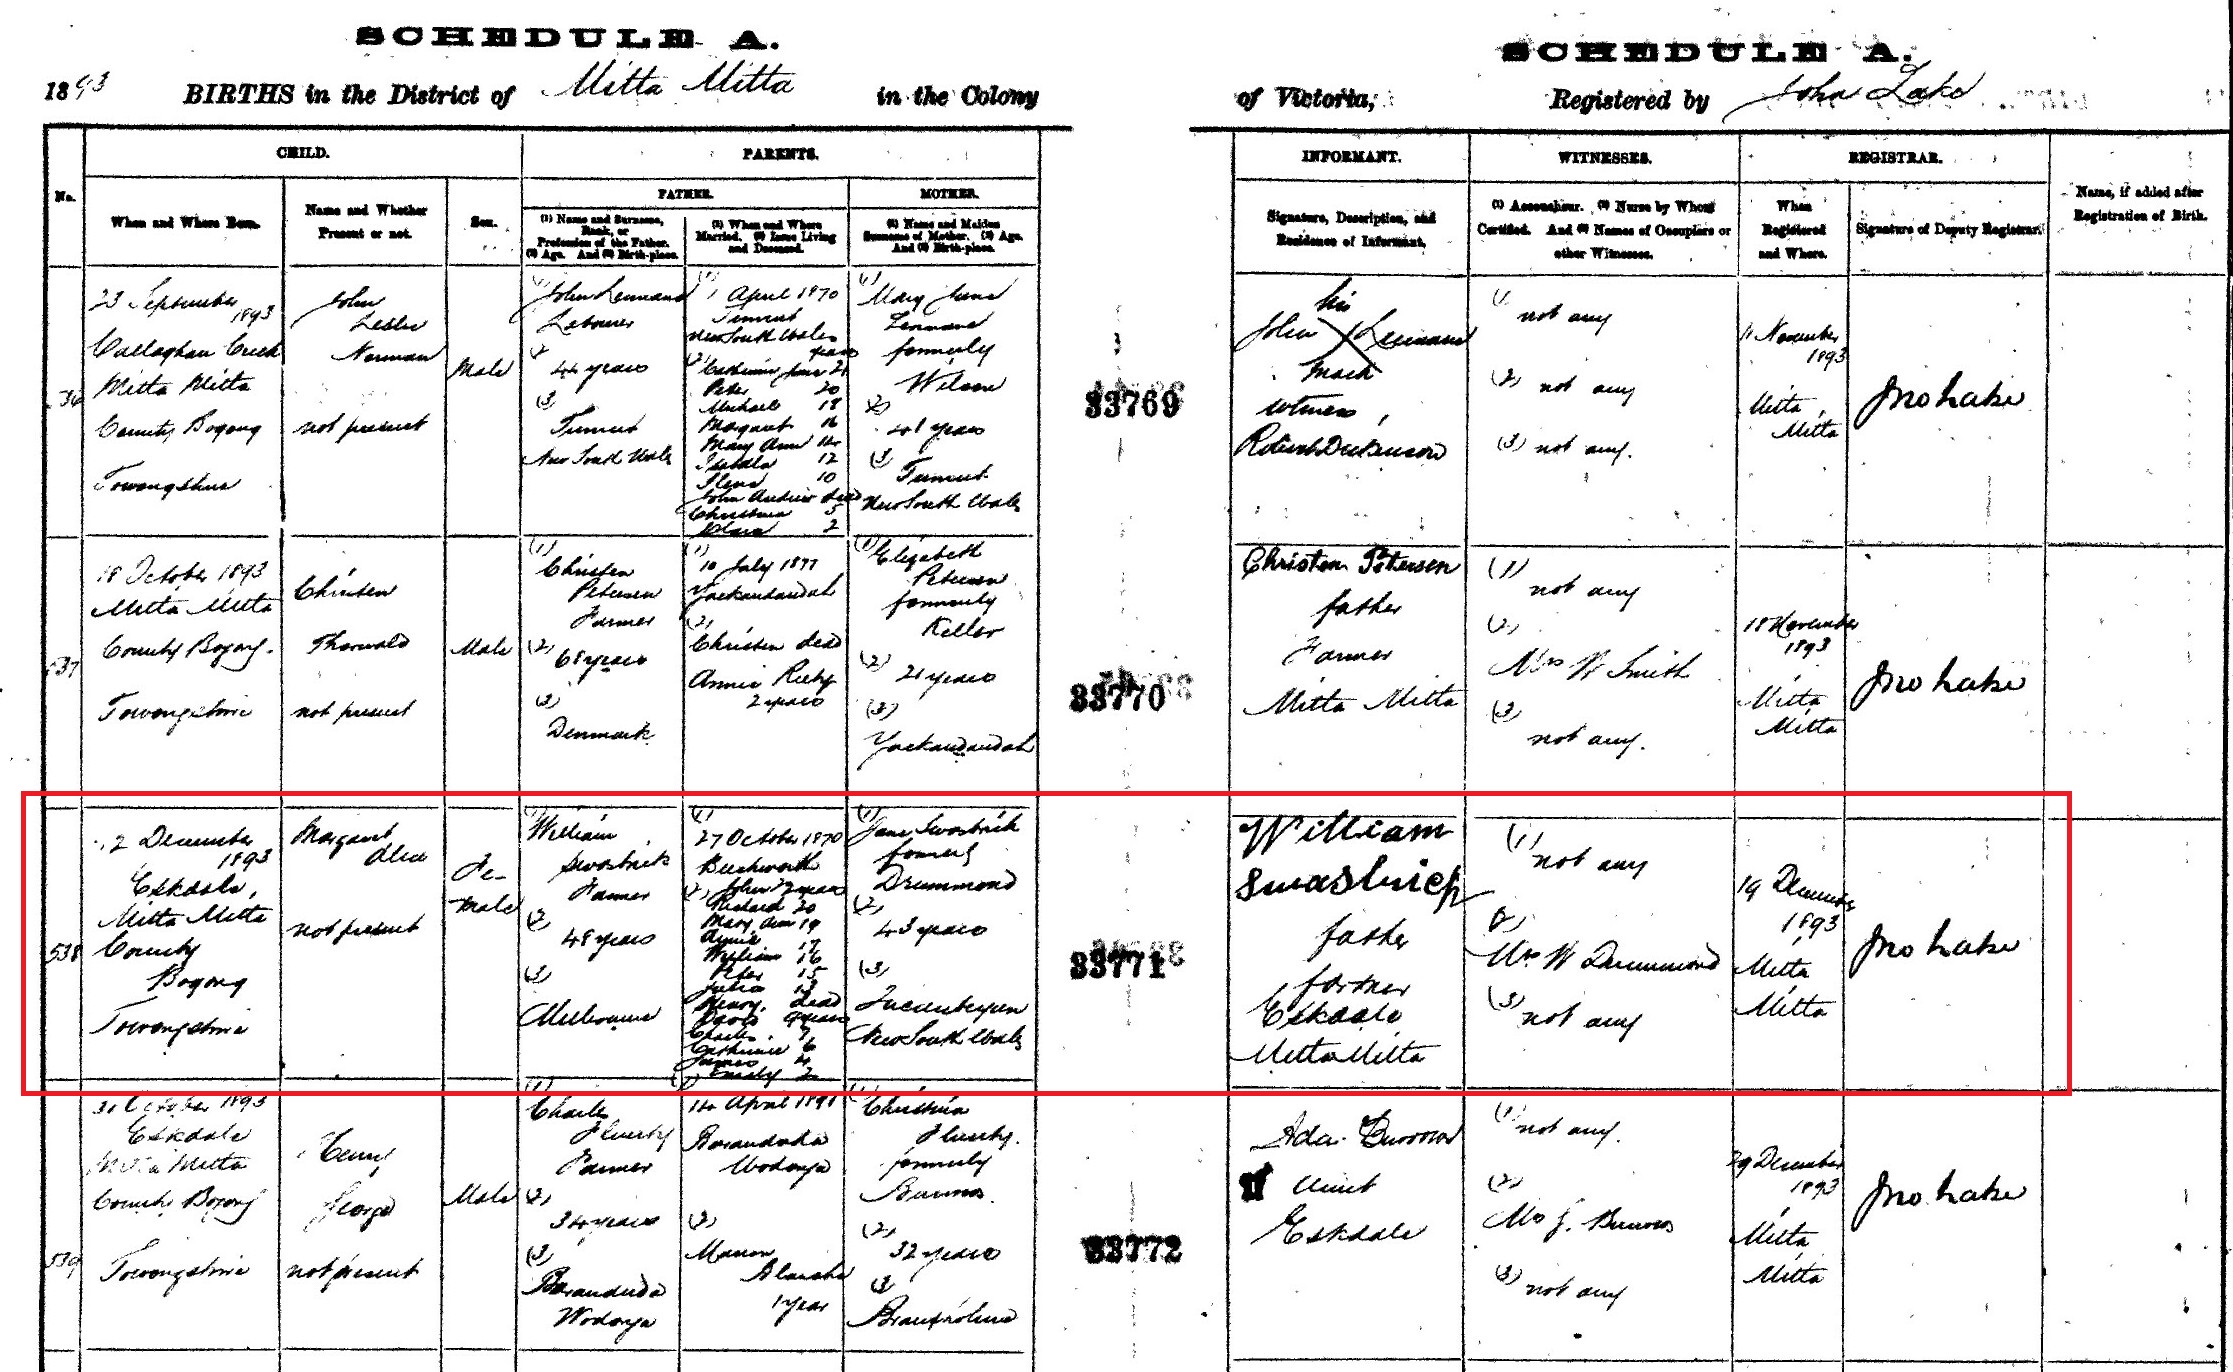 SCHEDULE A.
1893 BIRTHS in the District of Mitta Mitta in the Colony
No.
CHILD.
When and Where Born.
Name and Whether
Present or not.
Sex.
PARENTS.
FATHER.
(1) Name and Surname,
Rank, or
Profession of the Father.
(2) Age. And (3) Birth-place.
(1) When and Where
Married. (2) Issue Living
and Deceased.
MOTHER.
(1) Name and Maiden
Surname of Mother. (2) Age.
And (3) Birth-place.
SCHEDULE A.
of Victoria; Registered by John Lake
INFORMANT.
Signature, Description, and
Residence of Informant.
WITNESSES.
(1) Accoucheur. (2) Nurse by Whom
Certified. And (3) Names of Occupiers or
other Witnesses.
REGISTRAR.
When
Registered
and Where.
Signature of Deputy Registrar.
Name, if added after
Registration of Birth.
23 September
1893
Callaghan Creek
Mitta Mitta
County Bogong
Towongshire
John
Leslie
Norman
not present
Male
(1)
John Lennard
Labourer
(2)
44 years
(3)
Tumut
New South Wales
(1)
1 April 1870
Tumut
New South Wales
years
(2) Catherine Jane 21
Peter 20
Michael 18
Margaret 16
Mary Ann 14
Isabella 12
10
John Andrew dead
Christina 5
Clara 2
(1)
Mary Jane
Lennard
formerly
Wilson
(2)
41 years
(3)
Tumut
New South Wales
33769
his
John X Lennard
mark
witness,
Robert Dickinson
(1) not any
(2) not any
(3) not any.
11 November
1893
Mitta
Mitta
Jno Lake
537
18 October 1893
Mitta Mitta
County Bogong.
Towongshire
Christen
Thorwald
not present
Male
(1)
Christen
Petersen
Farmer
(2)
68 years
(3)
Denmark
(1)
Yackandandah
(2)
Christen dead
Annie
2 years
(1) Elizabeth
Petersen
formerly
Keller
(2)
21 years
(3)
Yackandandah
33770
Christen Petersen
father
Farmer
Mitta Mitta
(1)
not any
(2)
Mrs W Smith
(3)
not any.
18 November
1893
Mitta
Mitta
Jno Lake
538
2 December
1893
Eskdale,
Mitta Mitta
County
Bogong
Towongshire
Margaret
Alice
not present
Fe-
male
(1)
William
Swasbrick
Farmer
(2)
48 years
(3)
Melbourne
(1)
27 October 1870
Beechworth
(2) John 22 years
Richard 20
Mary Ann 19
Annie 17
William 16
Peter 15
Julia 13
Henry. dead
David 9 years
Charles 7
Catherine 6
James 4
Emily 2
(1)
Jane Swasbrick
formerly
Drummond
(2)
43 years
(3)
Queanbeyan
New South Wales
33771
William
Swasbrick
father
farmer
Eskdale
Mitta Mitta
(1)
not any
(2)
Mrs W Drummond
(3)
not any
19 December
1893
Mitta
Mitta
Jno Lake
539
31 October 1893
Eskdale
Mitta Mitta
County Bogong
Towongshire
Henry
George
not present
Male
(1)
Charles
Farmer
(2)
34 years
(3)
Baranduda
Wodonga
(1)
14 April 1891
Baranduda
Wodonga
(2)
1 year
(1)
Christina
formerly
(2)
32 years
(3)
33772
Ada Burrows
Aunt
Eskdale
(1) not any.
(2)
Mrs J. Burrows
(3) not any
29 December
1893
Mitta
Mitta
Jno Lake